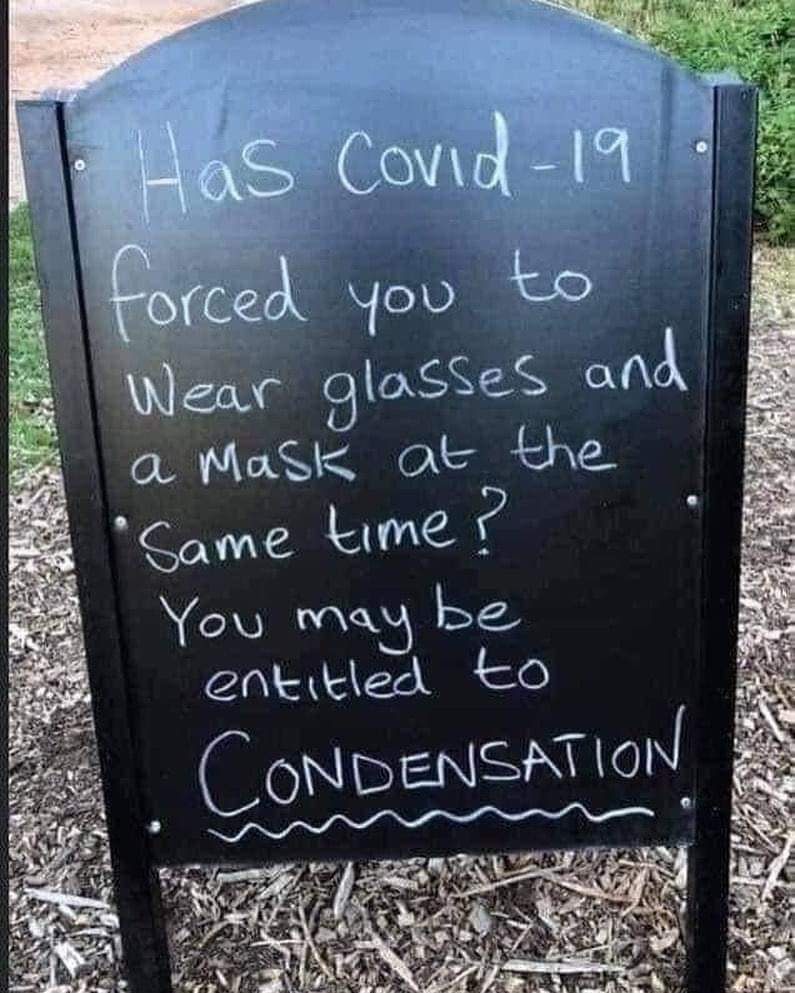 Has Covid-19
forced you to
Wear glasses and
a Mask at the
Same time?
You may be
entitled to
CONDENSATION